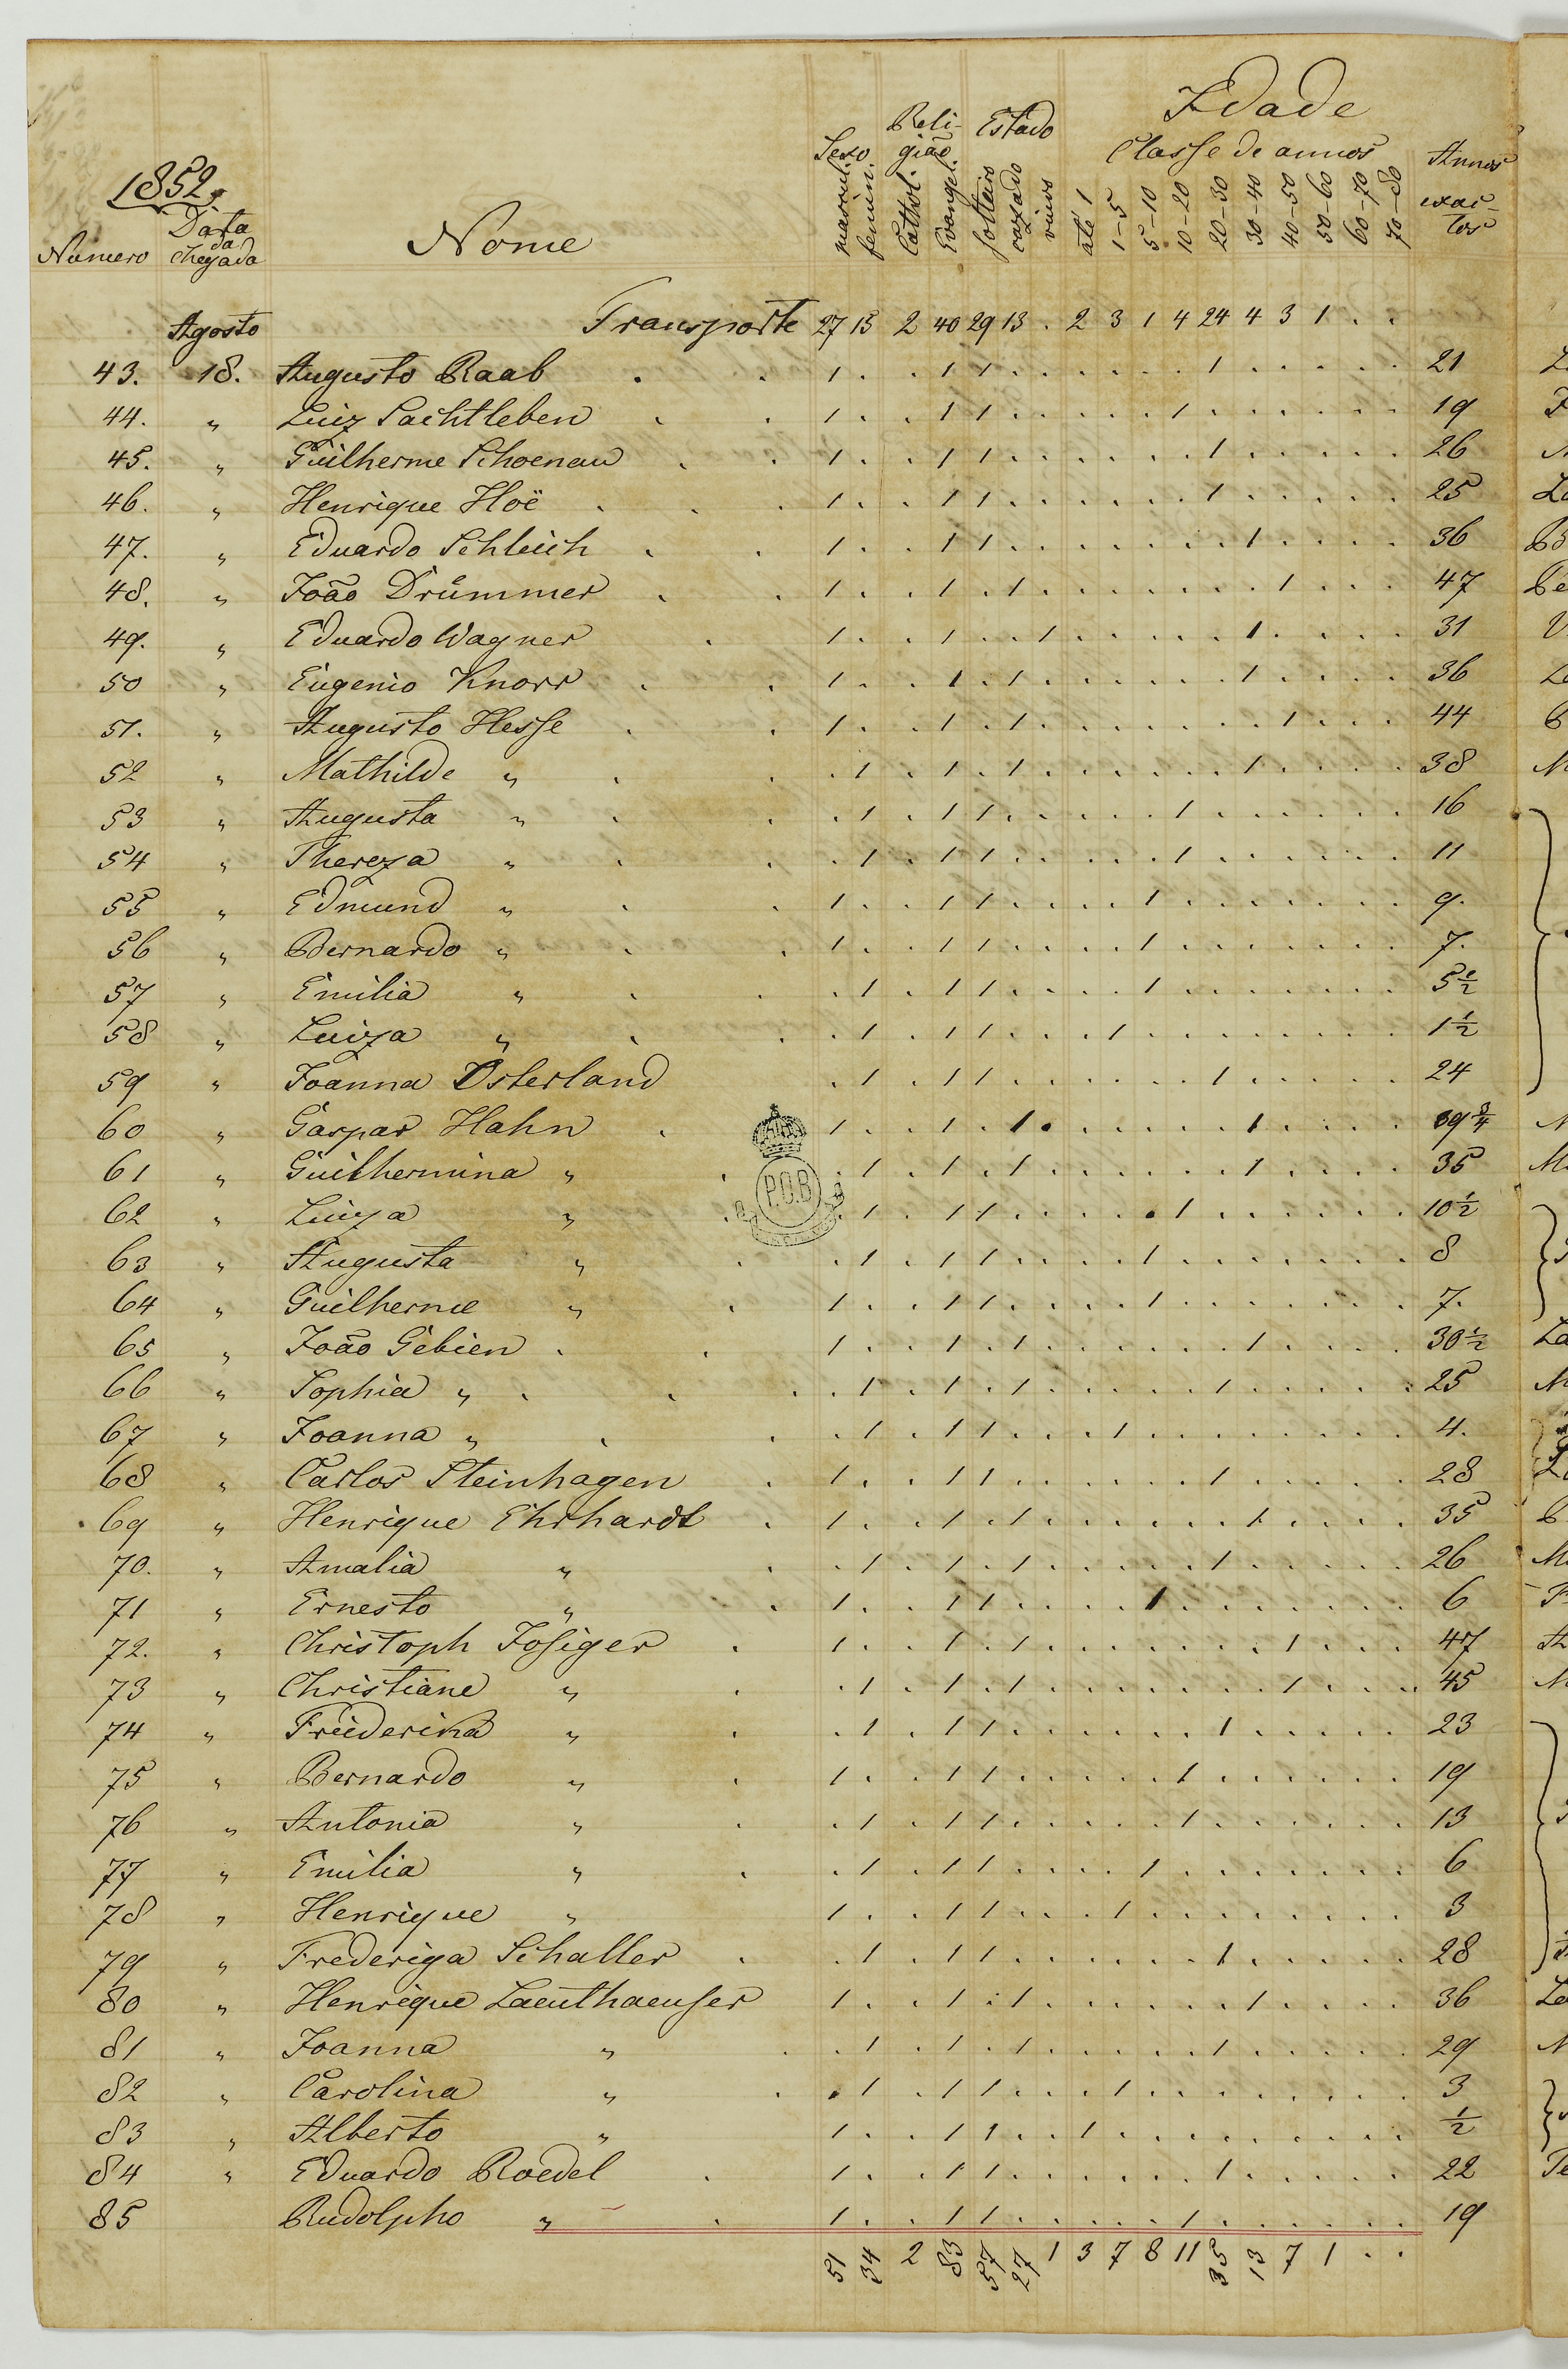 Idade
Reli-
gião
Estado
Sexo
Classe de annos
Annos
exac-
tos
1852.
Numero
Data
da
Chegada
Nome
mascul.
femin.
Cathol.
Evangel.
solteiro
cazado
viuvo
até 1
1-5
5-10
10-20
20-30
30-40
40-50
50-60
60-70
70-80
Agosto Transporte 27 15 2 40 29 13 . 2 3 1 4 24 4 3 1 . .
43. 18. Augusto Raab . . 1 . . 1 1 . . . . . . 1 . . . . . 21
44. " Luiz Sachtleben . . 1 . . 1 1 . . . . . 1 . . . . . . 19
45. " Guilherme Schoenau . . 1 . . 1 1 . . . . . . 1 . . . . . 26
46. " Henrique Hoë . . . 1 . . 1 1 . . . . . . 1 . . . . . 25
47. " Eduardo Schleich . . 1 . . 1 1 . . . . . . . 1 . . . . 36
48. " João Drümmer . . 1 . . 1 . 1 . . . . . . . 1 . . . 47
49. " Eduardo Wagner . 1 . . 1 . . 1 . . . . . 1 . . . . 31
50 " Eugenio Knorr . . 1 . . 1 . 1 . . . . . . 1 . . . . 36
51. " Augusto Hesse . . 1 . . 1 . 1 . . . . . . . 1 . . . 44
52 " Mathilde " . . . 1 . 1 . 1 . . . . . . 1 . . . . 38
53 " Augusta " . . . 1 . 1 1 . . . . . 1 . . . . . . 16
54 " Thereza " . . . 1 . 1 1 . . . . . 1 . . . . . . 11
55 " Edmund " . . 1 . . 1 1 . . . . 1 . . . . . . . 9.
56 " Bernardo " . . 1 . . 1 1 . . . . 1 . . . . . . . 7.
57 " Emilia " . . . 1 . 1 1 . . . . 1 . . . . . . . 5½
58 " Luiza " . . . 1 . 1 1 . . . 1 . . . . . . . . 1½
59 " Joanna Osterland . 1 . 1 1 . . . . . . 1 . . . . . 24
60 " Gaspar Hahn . 1 . . 1 . 1 . . . . . . 1 . . . . 39¾
61 " Guilhermina " . . 1 . 1 . 1 . . . . . . 1 . . . . 35
P.O.B
62 " Luiza " . . 1 . 1 1 . . . . . 1 . . . . . . 10½
63 " Augusta " . . 1 . 1 1 . . . . 1 . . . . . . . 8
64 " Guilherme " . 1 . . 1 1 . . . . 1 . . . . . . . 7.
65 " João Gebien . . 1 . . 1 . 1 . . . . . . 1 . . . . 30½
66 " Sophia " . . . . 1 . 1 . 1 . . . . . 1 . . . . . 25
67 " Joanna " . . . 1 . 1 1 . . . 1 . . . . . . . . 4.
68 " Carlos Steinhagen . 1 . . 1 1 . . . . . . 1 . . . . . 28
69 " Henrique Ehrhardt . 1 . . 1 . 1 . . . . . . 1 . . . . 35
70. " Amalia " . . 1 . 1 . 1 . . . . . 1 . . . . . 26
71 " Ernesto " . 1 . . 1 1 . . . . 1 . . . . . . . 6
72. " Christoph Josiger . 1 . . 1 . 1 . . . . . . . 1 . . . 47
73 " Christiane " . . 1 . 1 . 1 . . . . . . . 1 . . . 45
74 " Friederika " . . 1 . 1 1 . . . . . . 1 . . . . . 23
75 " Bernardo " . 1 . . 1 1 . . . . . 1 . . . . . . 19
76 " Antonia " . . 1 . 1 1 . . . . . 1 . . . . . . 13
77 " Emilia " . . 1 . 1 1 . . . . 1 . . . . . . . 6
78 " Henrique " 1 . . 1 1 . . . 1 . . . . . . . . 3
79 " Frederiga Schaller . . 1 . 1 1 . . . . . . 1 . . . . . 28
80 " Henrique Laeuthaeuser 1 . . 1 . 1 . . . . . . 1 . . . . 36
81 " Joanna " . . 1 . 1 . 1 . . . . . 1 . . . . . 29
82 " Carolina " . . 1 . 1 1 . . . 1 . . . . . . . . 3
83 " Alberto " 1 . . 1 1 . . 1 . . . . . . . . . ½
84 " Eduardo Roedel . 1 . . 1 1 . . . . . . 1 . . . . . 22
85 Rudolpho " . 1 . . 1 1 . . . . . 1 . . . . . . 19
51 34 2 83 57 27 1 3 7 8 11 35 13 7 1 . .